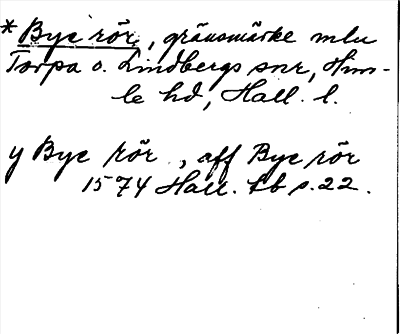 * Bye rör, gränsmärke mlu
Torpa o. Lindbergs snr, Him-
le hd, Hall. l.
y Bye rör, aff Bye rör
1574 Hall. tb s. 22.